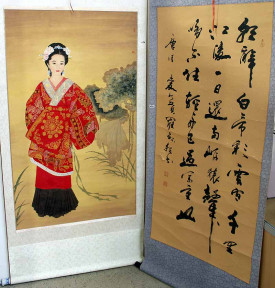 朝辭白帝彩雲間千里
江陵一日還兩岸猿聲
啼不住輕舟已過萬重山